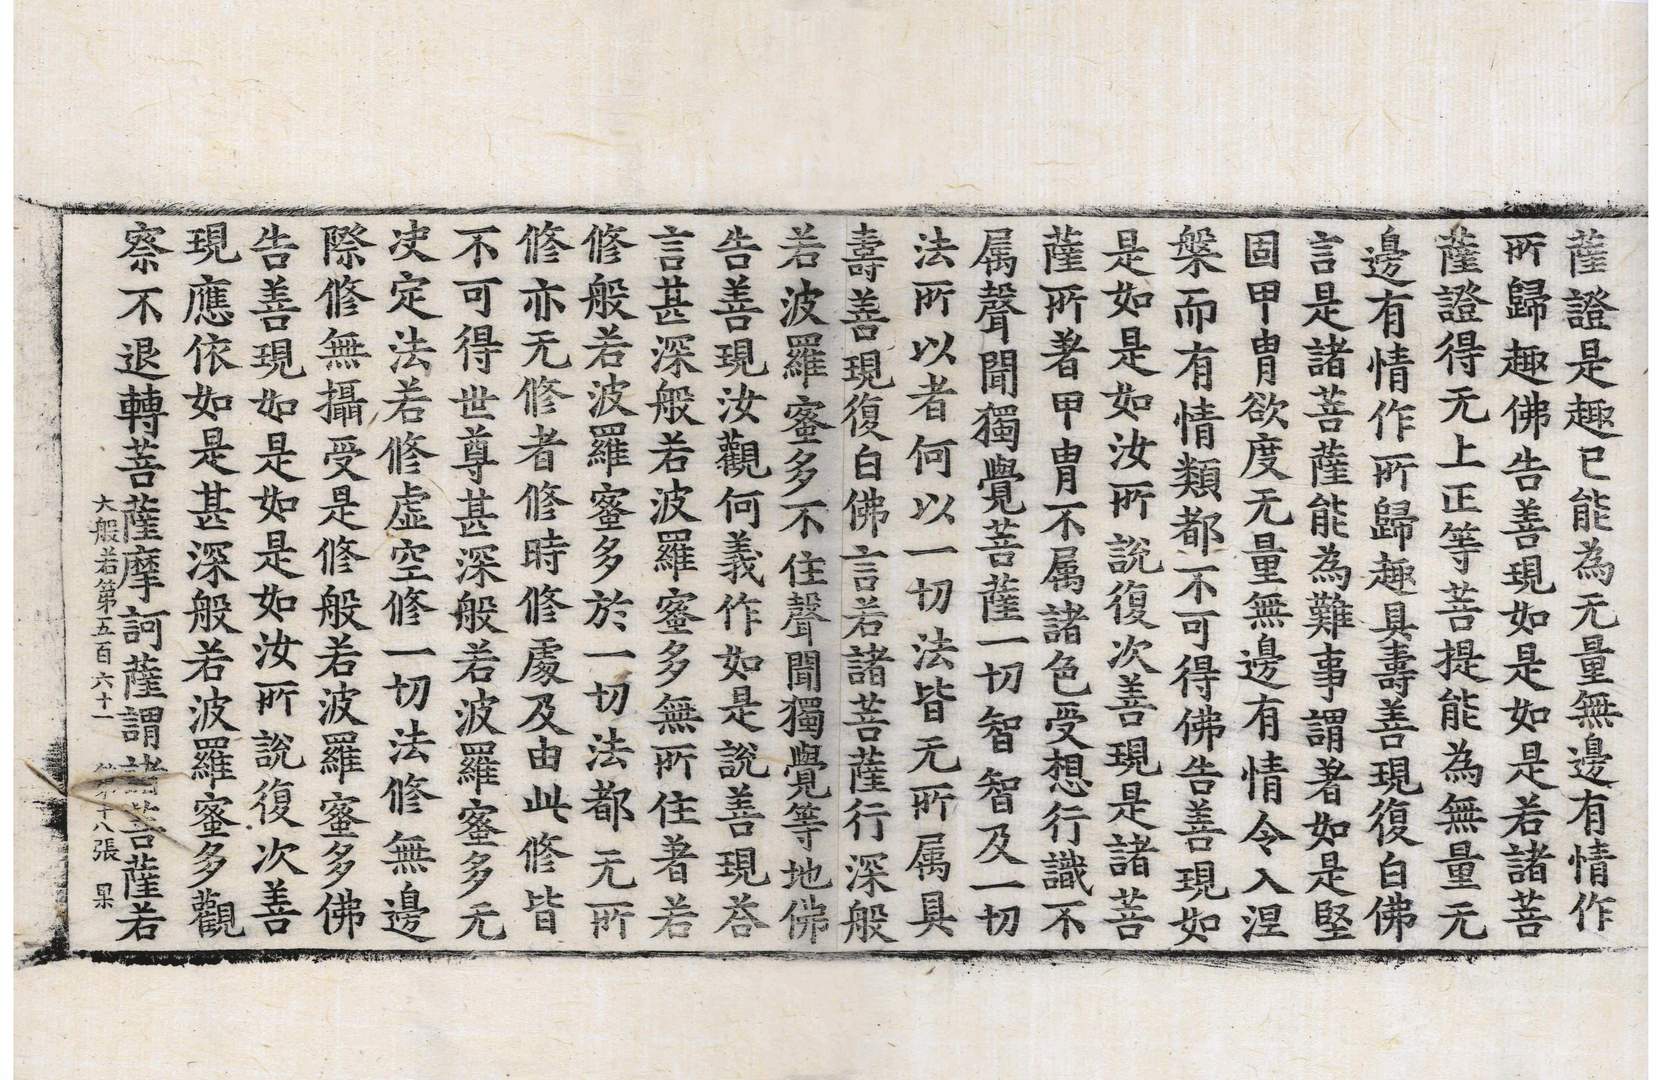 薩證是趣已能為无量無邊有情作
所歸趣佛告善現如是如是若諸菩
薩證得无上正等菩提能為無量无
邊有情作所歸趣具壽善現復白佛
言是諸菩薩能為難事謂著如是堅
固甲冑欲度无量無邊有情令入涅
槃而有情類都不可得佛告善現如
是如是如汝所說復次善現是諸菩
薩所著甲冑不属諸色受想行識不
属聲聞獨覺菩薩一切智智及一切
法所以者何以一切法皆无所属具
壽善現復白佛言若諸菩薩行深般
若波羅蜜多不住聲聞獨覺等地佛
告善現汝觀何義作如是說善現荅
言甚深般若波羅蜜多無所住著若
修般若波羅蜜多於一切法都无所
修亦无修者修時修處及由此修皆
不可得世尊甚深般若波羅蜜多无
决定法若修虛空修一切法修無邊
際修無攝受是修般若波羅蜜多佛
告善現如是如是如汝所說復次善
現應依如是甚深般若波羅蜜多觀
察不退轉菩薩摩訶薩謂諸菩薩若
大般若第五百六十一 第十八張 杲